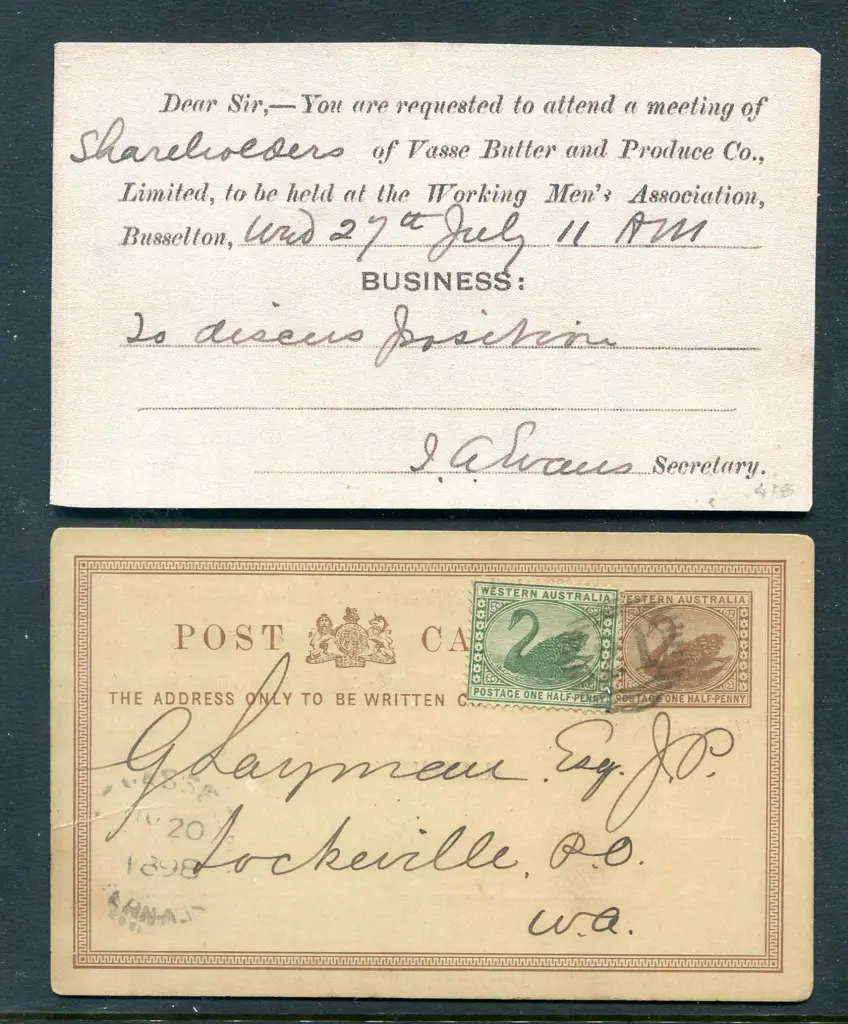 Dear Sir,—You are requested to attend a meeting of
Shareholders of Vasse Butter and Produce Co.,
Limited, to be held at the Working Men's Association,
Busselton, Wed 27th July 11 AM
BUSINESS:
To discus position
I. A. Evans Secretary.
POST CA
WESTERN AUSTRALIA
POSTAGE ONE HALF-PENNY
ESTERN AUSTRALIA
POSTAGE ONE HALF-PENNY
12
THE ADDRESS ONLY TO BE WRITTEN
G Layman Esq. J.P.
Lockeville, P.O.
W.A.
20
1898